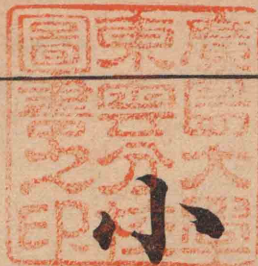 廣島大學
東雲分校
圖書之印
小